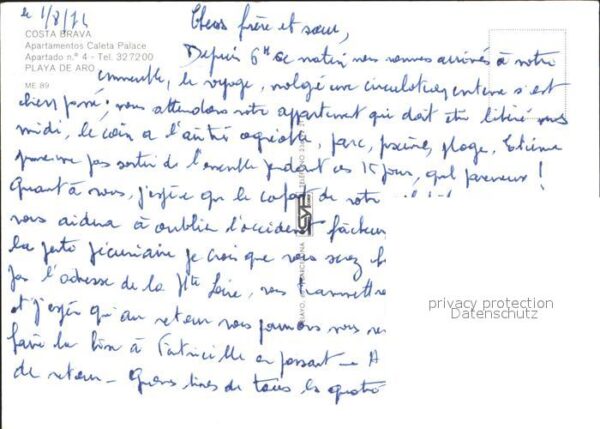 le 1/8/76
COSTA BRAVA
Apartamentos Caleta Palace
Apartado n.° 4 - Tel. 327200
PLAYA DE ARO
ME 89
Chers frère et sœur,
Depuis 6H ce matin, nous sommes arrivés à notre
immeuble, le voyage, malgré une circulation intense s'est
bien passé; nous attendons notre appartement qui doit être libéré vers
midi, le coin a l'air très agréable, parc, piscine, plage, Etienne
pense ne pas sortir de l'ensemble pendant ces 15 jours, quel paresseux!
Quant à vous, j'espère que le confort de votre
vous aidera à oublier l'accident fâcheux
la perte pécuniaire je crois que vous serez
par l'adresse de la Hte Loire, vous transmettre
et j'espère qu'au retour nous pourrons vous
faire la bise à en passant - A
de retour - Grosses bises de tous les quatre
privacy protection
Datenschutz